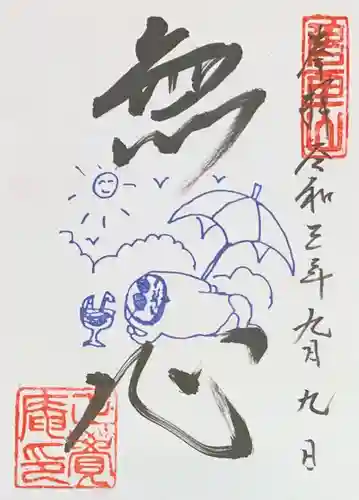 奉拝 令和三年九月九日
無
心